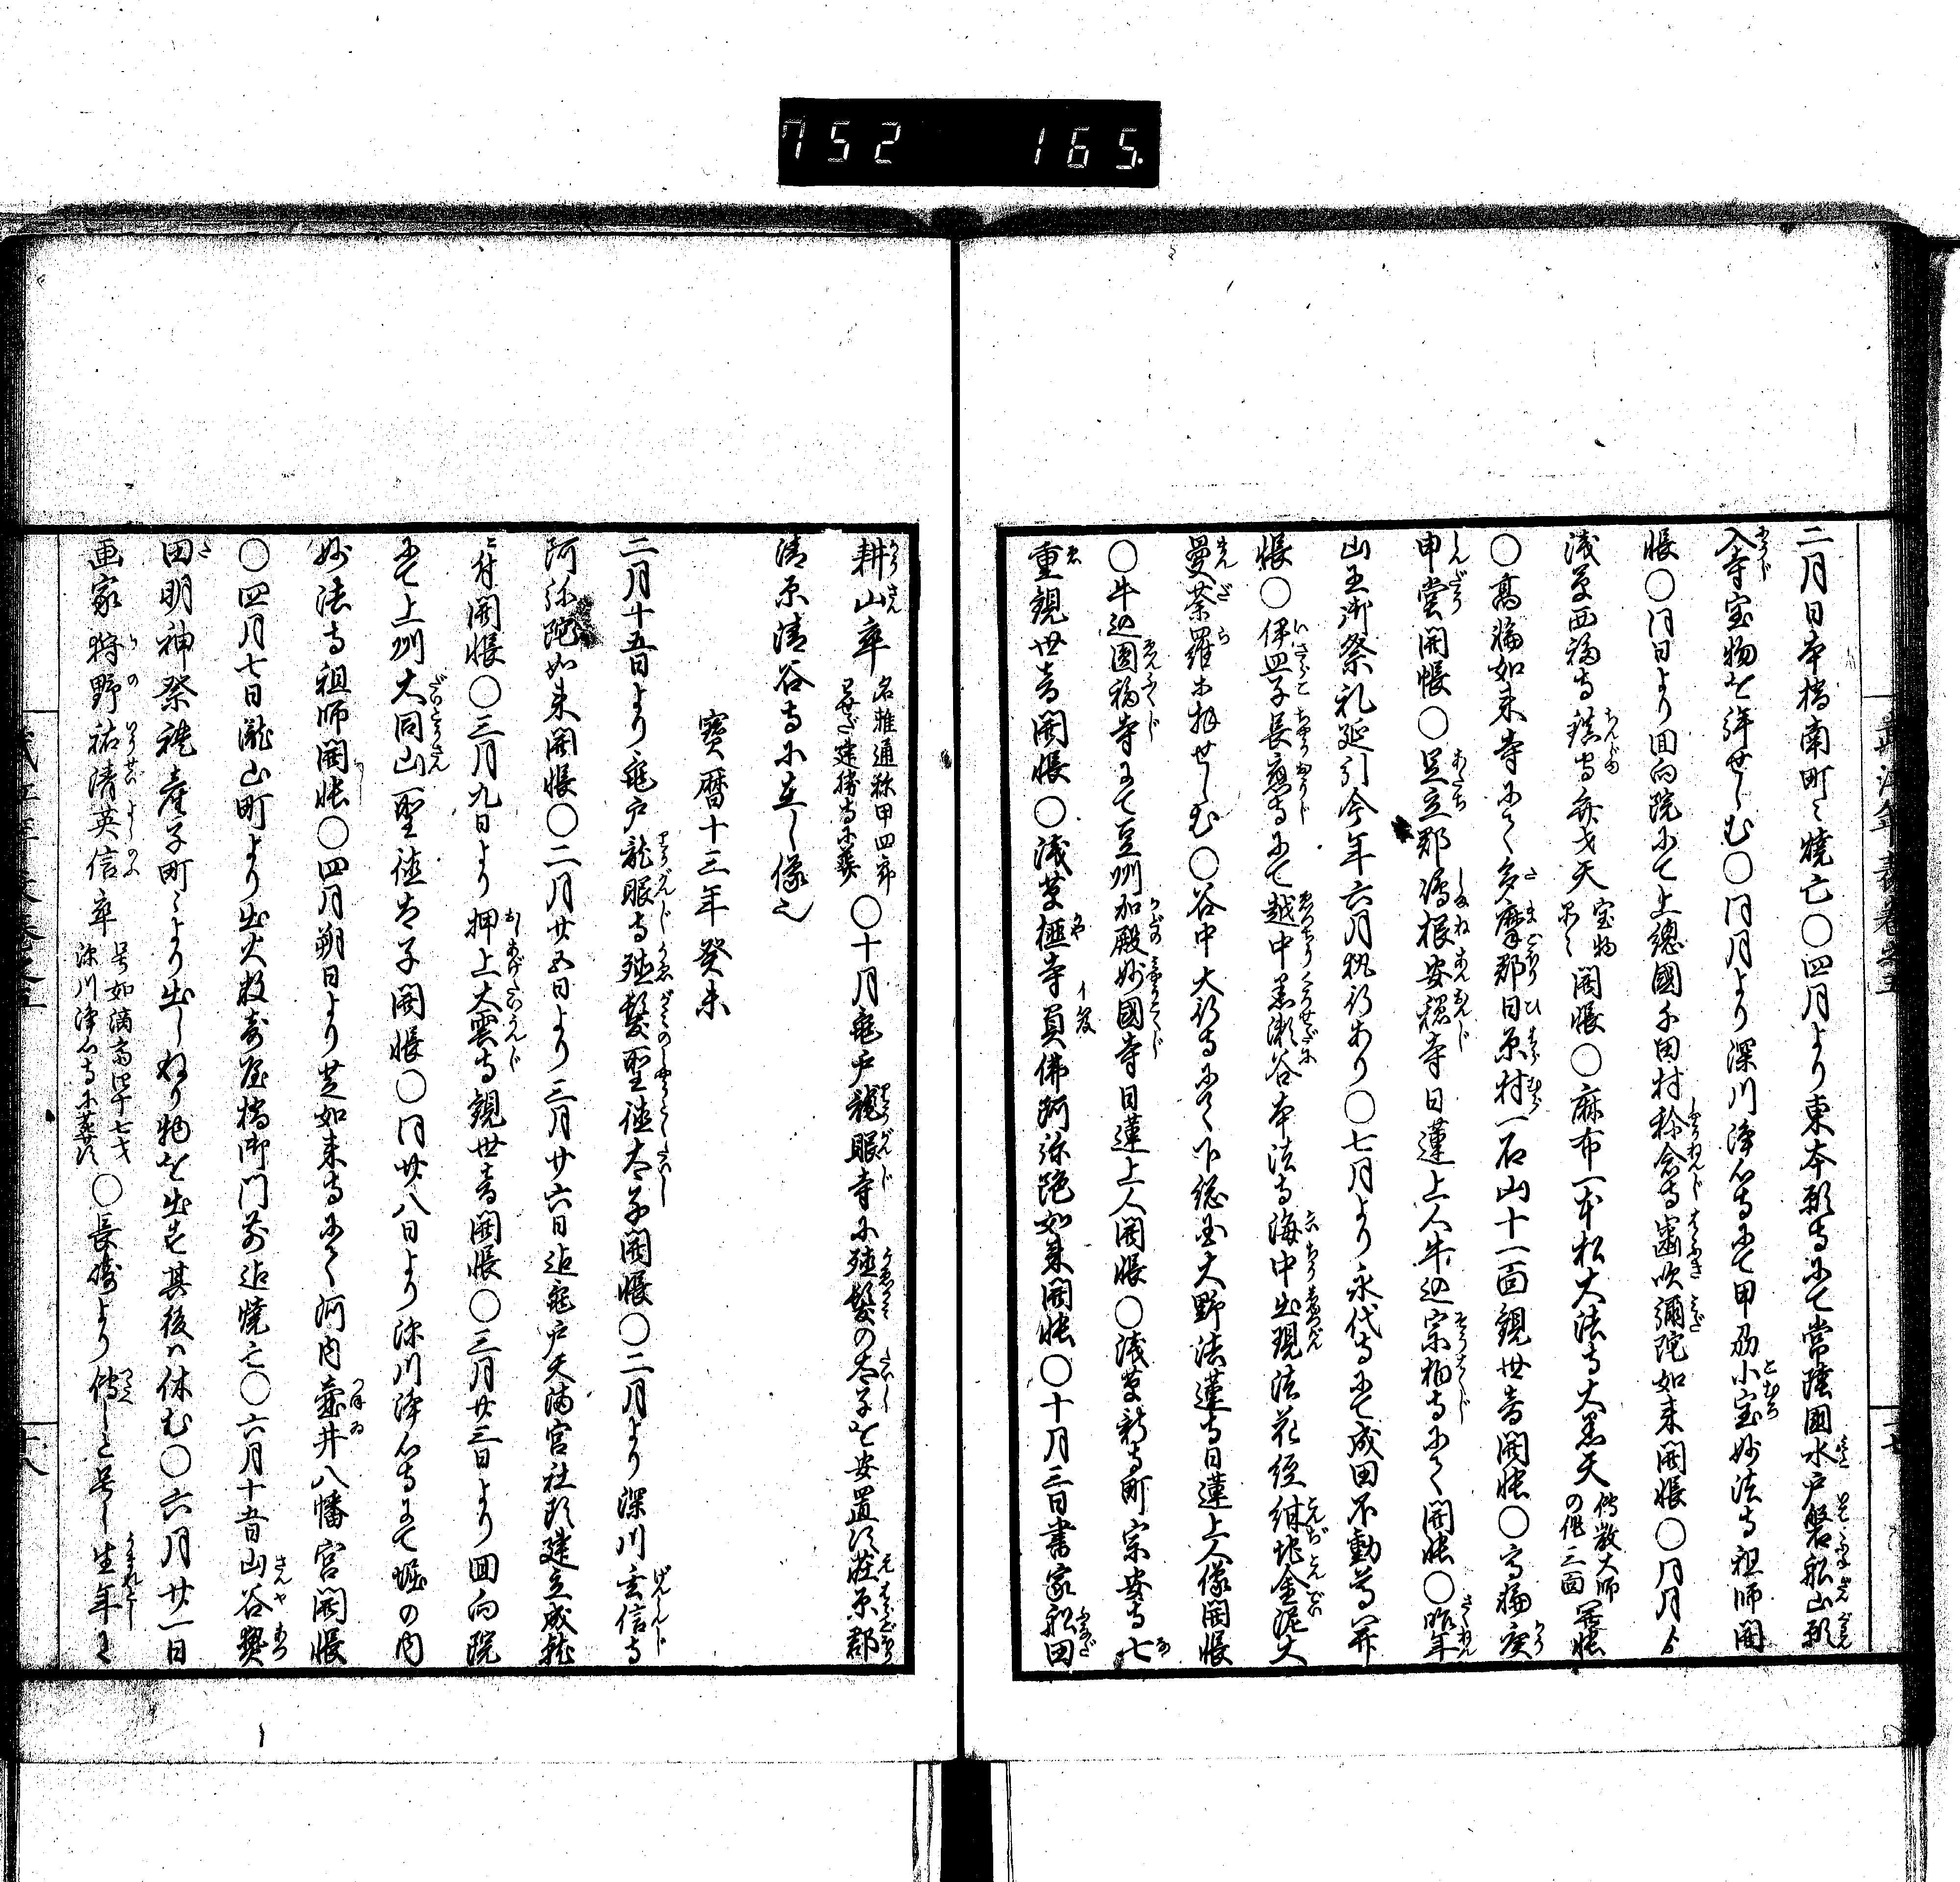 752 165
二月日本橋南町々焼亡〇四月より東本願寺にて常陸國水戸磐船山願
入寺宝物を拝せしむ〇同月より深川浄心寺にて甲刕小室妙法寺祖師開
帳〇同日より回向院にて上總國千田村称念寺歯吹彌陀如来開帳〇同月より
浅草西福寺鎮守弁才天宝物品々開帳〇麻布一本松大法寺大黒天傳教大師の作三面開帳
〇高福如来寺にて多摩郡日原村一石山十一面観世音開帳〇高福庚
申堂開帳〇足立郡嶋根安穏寺日蓮上人牛込宗柏寺にて開帳〇昨年
山王御祭礼延引今年六月執行あり〇七月より永代寺にて成田不動尊開
帳〇伊皿子長應寺にて越中黒瀬谷本法寺海中出現法花経紺地金泥大
曼荼羅等拝せしむ〇谷中大行寺にて下総国大野法蓮寺日蓮上人像開帳
〇牛込圓福寺にて豆州加殿妙國寺日蓮上人開帳〇浅草新寺町宗安寺七
重観世音開帳〇浅草榧寺員佛阿弥陀如来開帳〇十月三日書家松田
耕山卒名雅通称甲四郎建勝寺に葬〇十月亀戸龍眼寺に殖髪の太子を安置す荏原郡
清原清谷寺に在し像也
寳暦十三年癸未
二月十五日より亀戸龍眼寺殖髪聖徳太子開帳〇二月より深川玄信寺
阿弥陀如来開帳〇二月廿五日より三月廿六日迄亀戸天満宮社頭建立成就
に付開帳〇三月九日より押上大雲寺観世音開帳〇三月廿三日より回向院
にて上州大同山聖徳太子開帳〇同廿八日より深川浄心寺にて堀の内
妙法寺祖師開帳〇四月朔日より芝如来寺にて河内壷井八幡宮開帳
〇四月七日瀧山町より出火数寄屋橋御門前迄焼亡〇六月十五日山谷
田明神祭禮産子町々より出しねり物を出す其後は休む〇六月廿一日
画家狩野祐清英信卒号如滴斎四十七才深川浄心寺に葬す〇長崎より傳しと号し生年